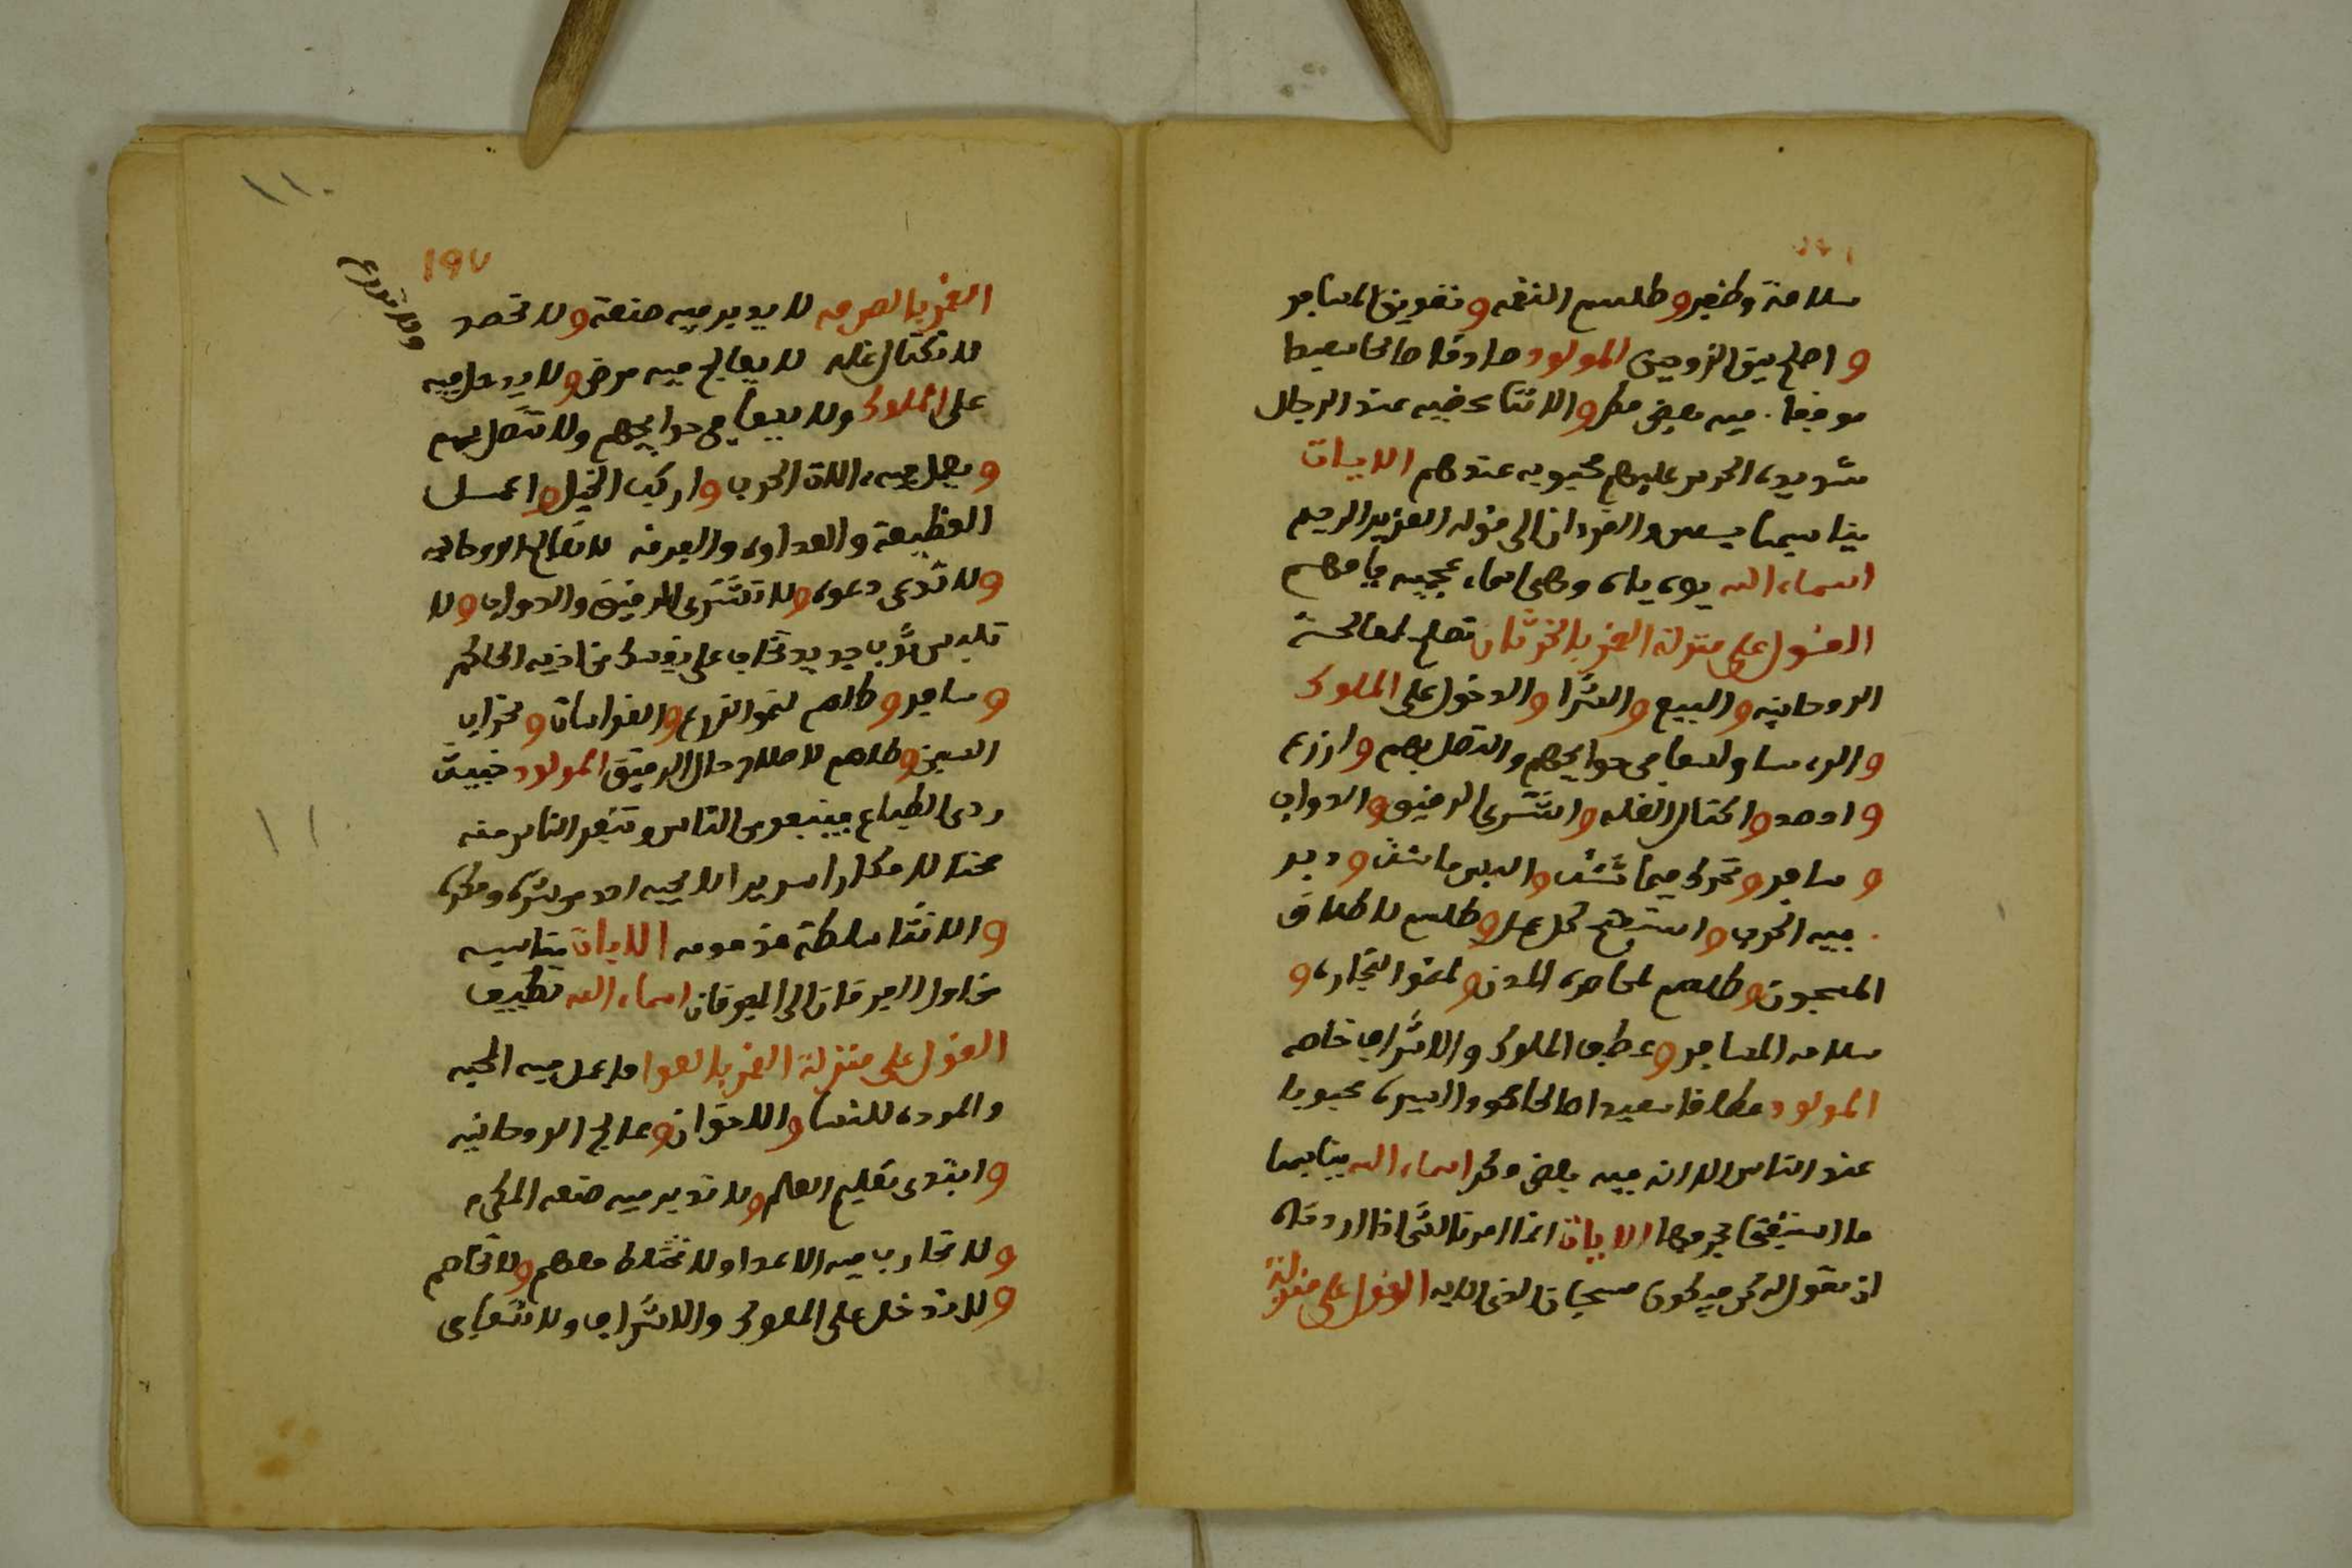 سلامة وظفر وطلسم النقمه وتفويق المسافر
واصلح بين الزوجين المولود صادقا صالحا سعيدا
موفقا فيه بعض مكر والانثا محضيه عند الرجال
شديدة الحرص عليهم محبوبه عندهم الايات
يناسبها يس والقران الى قوله العزيز الرحيم
اسماء الله يوه ياه وهى اسماء عجيبه فافهم
القول على منزلة القمر بالخرثان تصلح لمعالجة
الروحانيه والبيع والشرا والدخول على الملوك
والروسا والسعا فى حوايجهم والتصل بهم وازرع
واحصد واكتال الغله واشترى الرقيق والدواب
وسافر وتحرك فيما شئت والبس ما شئت ودبر
فيه الحرب واستفتح كل عمل وطلسم لاطلاق
المسجون وطلسم لمحاصرة المدن ولنمو التجاره و
سلامه المسافر وعطف الملوك والاشراف خاصه
المولود مطاعا سعيدا صالحا محمود السيره محبوبا
عند الناس الا انه فيه بعض مكر اسماء الله يناسبها
ما استفتحا بحرفها الايات انما امرنا لشى اذا اردناه
ان نقول له كن فيكون سبحان الذى الايه القول على منزلة
١٩٧
القمر بالصرفه لا يدبر فيه صنعة ولا تحصد
ولا تزرع
لا تكتال غله لا يعالج فيه مرض ولا يدخل فيه
على الملوك ولا يسعا فى حوايجهم ولا تتصل بهم
ويعمل فيه الات الحرب واركب الخيل واعمل
القطيعة والعداوه والفرقه لا تعالج الروحانيه
ولا تدعى دعوه ولا تشترى الرقيق والدواب ولا
تلبس ثوب جديد تخاف على نفسك من اذيه الحاكم
وسافر وطلسم لنمو الزرع والغراسات وخراب
السجن وطلسم لاصلاح حال الرقيق المولود خبيث
ردى الطباع مبغوض الناس وتنفر الناس منه
محتالا مكارا شريرا لا يحبه احد من شره ومكره
والانثا سلطة مذمومه الايات يناسبه
من اول الفرقان الى الفرقان اسماء الله تطييف
القول على منزلة القمر بالعوا فاعمل فيه المحبه
والموده للنسا والاخوان وعالج الروحانيه
وابتدى تعليم العلم ولا تدبر فيه صنعه المكرم
ولا تحارب فيه الاعدا ولا تختلط معهم ولا تخاصم
ولا تدخل على الملوك والاشراف ولا تسعا فى